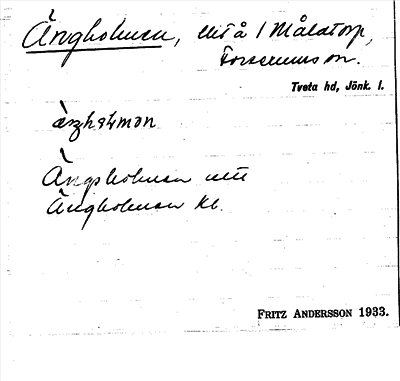 Ängholmen, litå / Måldtorp,
Forserums sn.
Tveta hd, Jönk. l.
Ängsholmen
Ängholmen kl.
FRITZ ANDERSSON 1933.